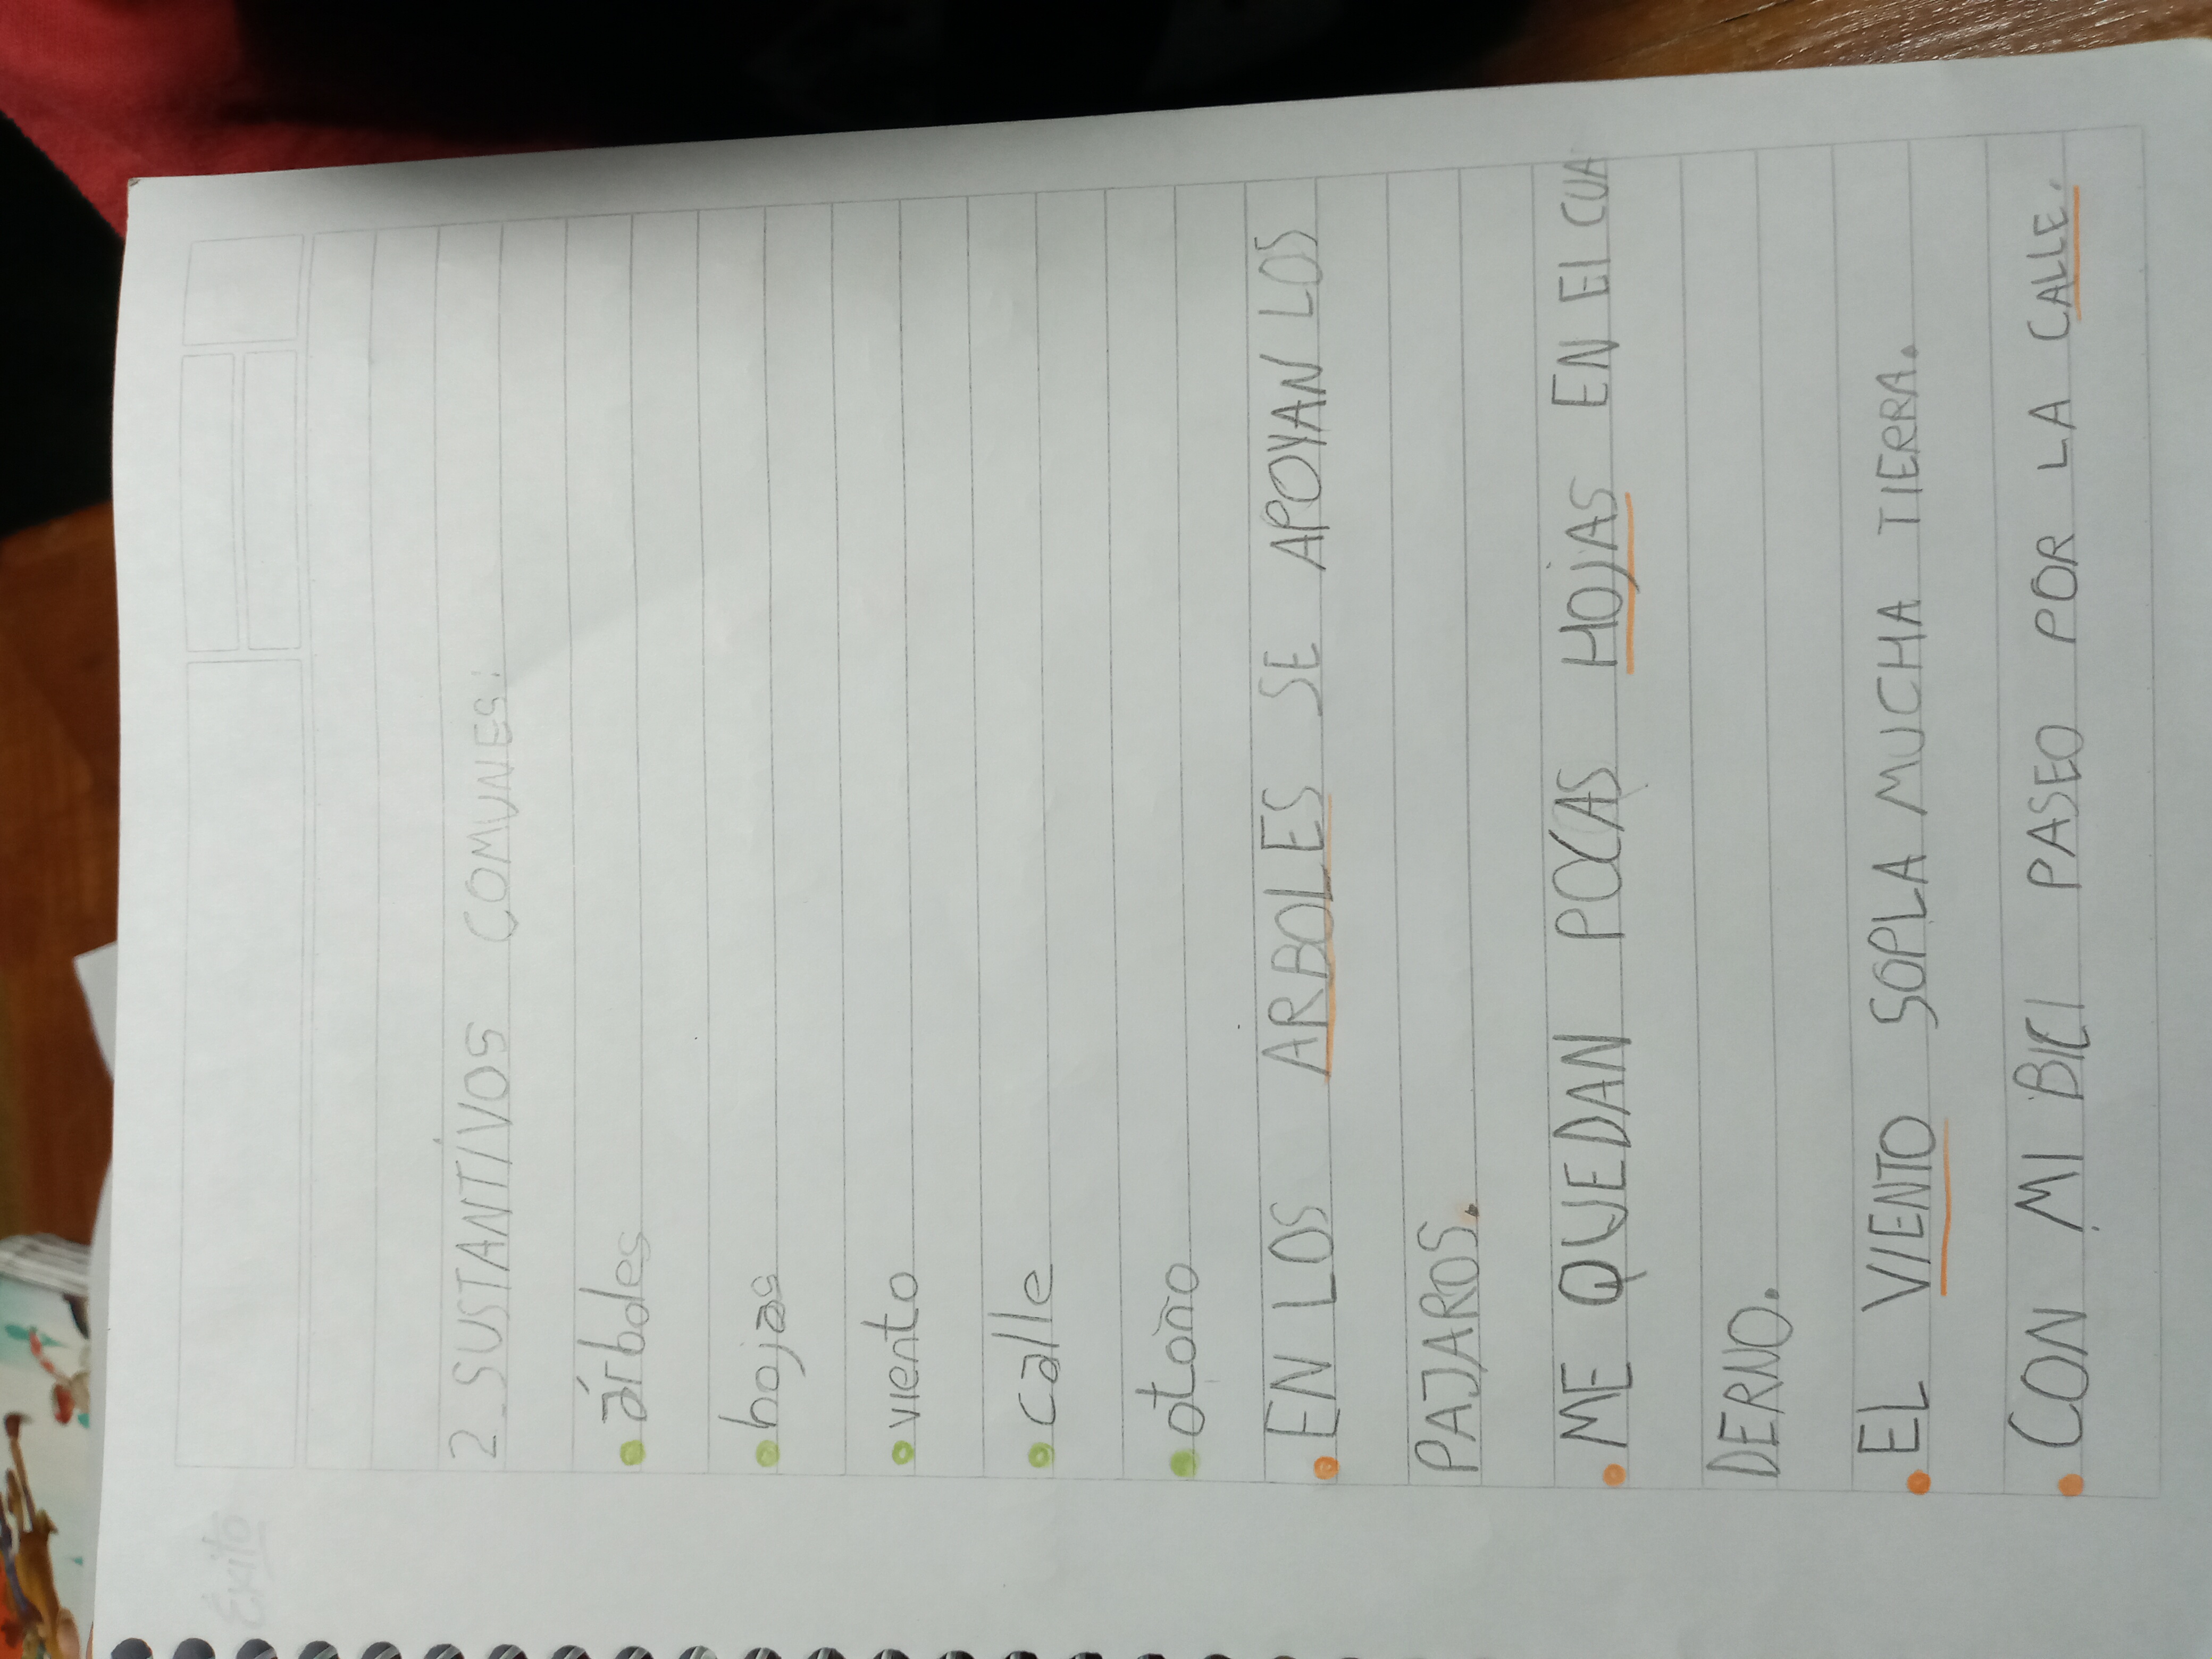 Éxito
2_SUSTANTÍVOS COMUNES:
• árboles
• hojas
• viento
• calle
• otoño
• EN LOS ARBOLES SE APOYAN LOS
PAJAROS.
• ME QUEDAN POCAS HOjAS EN El CUA
DERNO.
• EL VIENTO SOPLA MUCHA TIERRA.
• CON MI BICI PASEO POR LA CALLE.